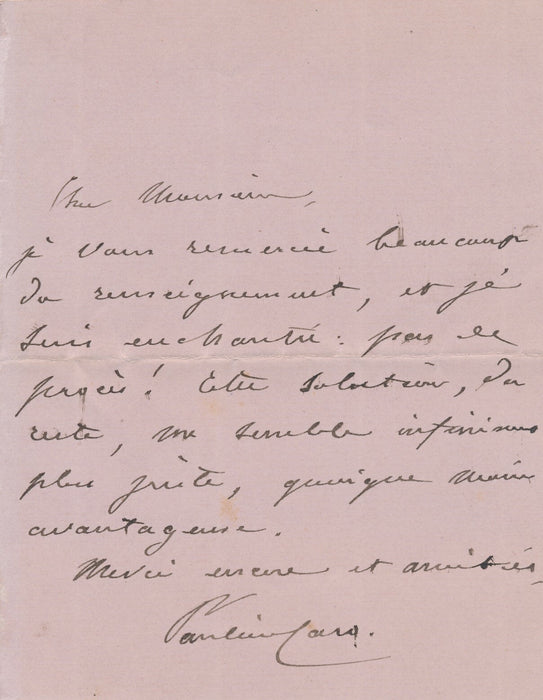 Cher Monsieur,
je vous remercie beaucoup
du renseignement, et je
suis enchantée : pas de
procès ! Cette solution, du
reste, me semble infiniment
plus juste, quoique moins
avantageuse.
Merci encore et amitiés,
Pauline Caro.